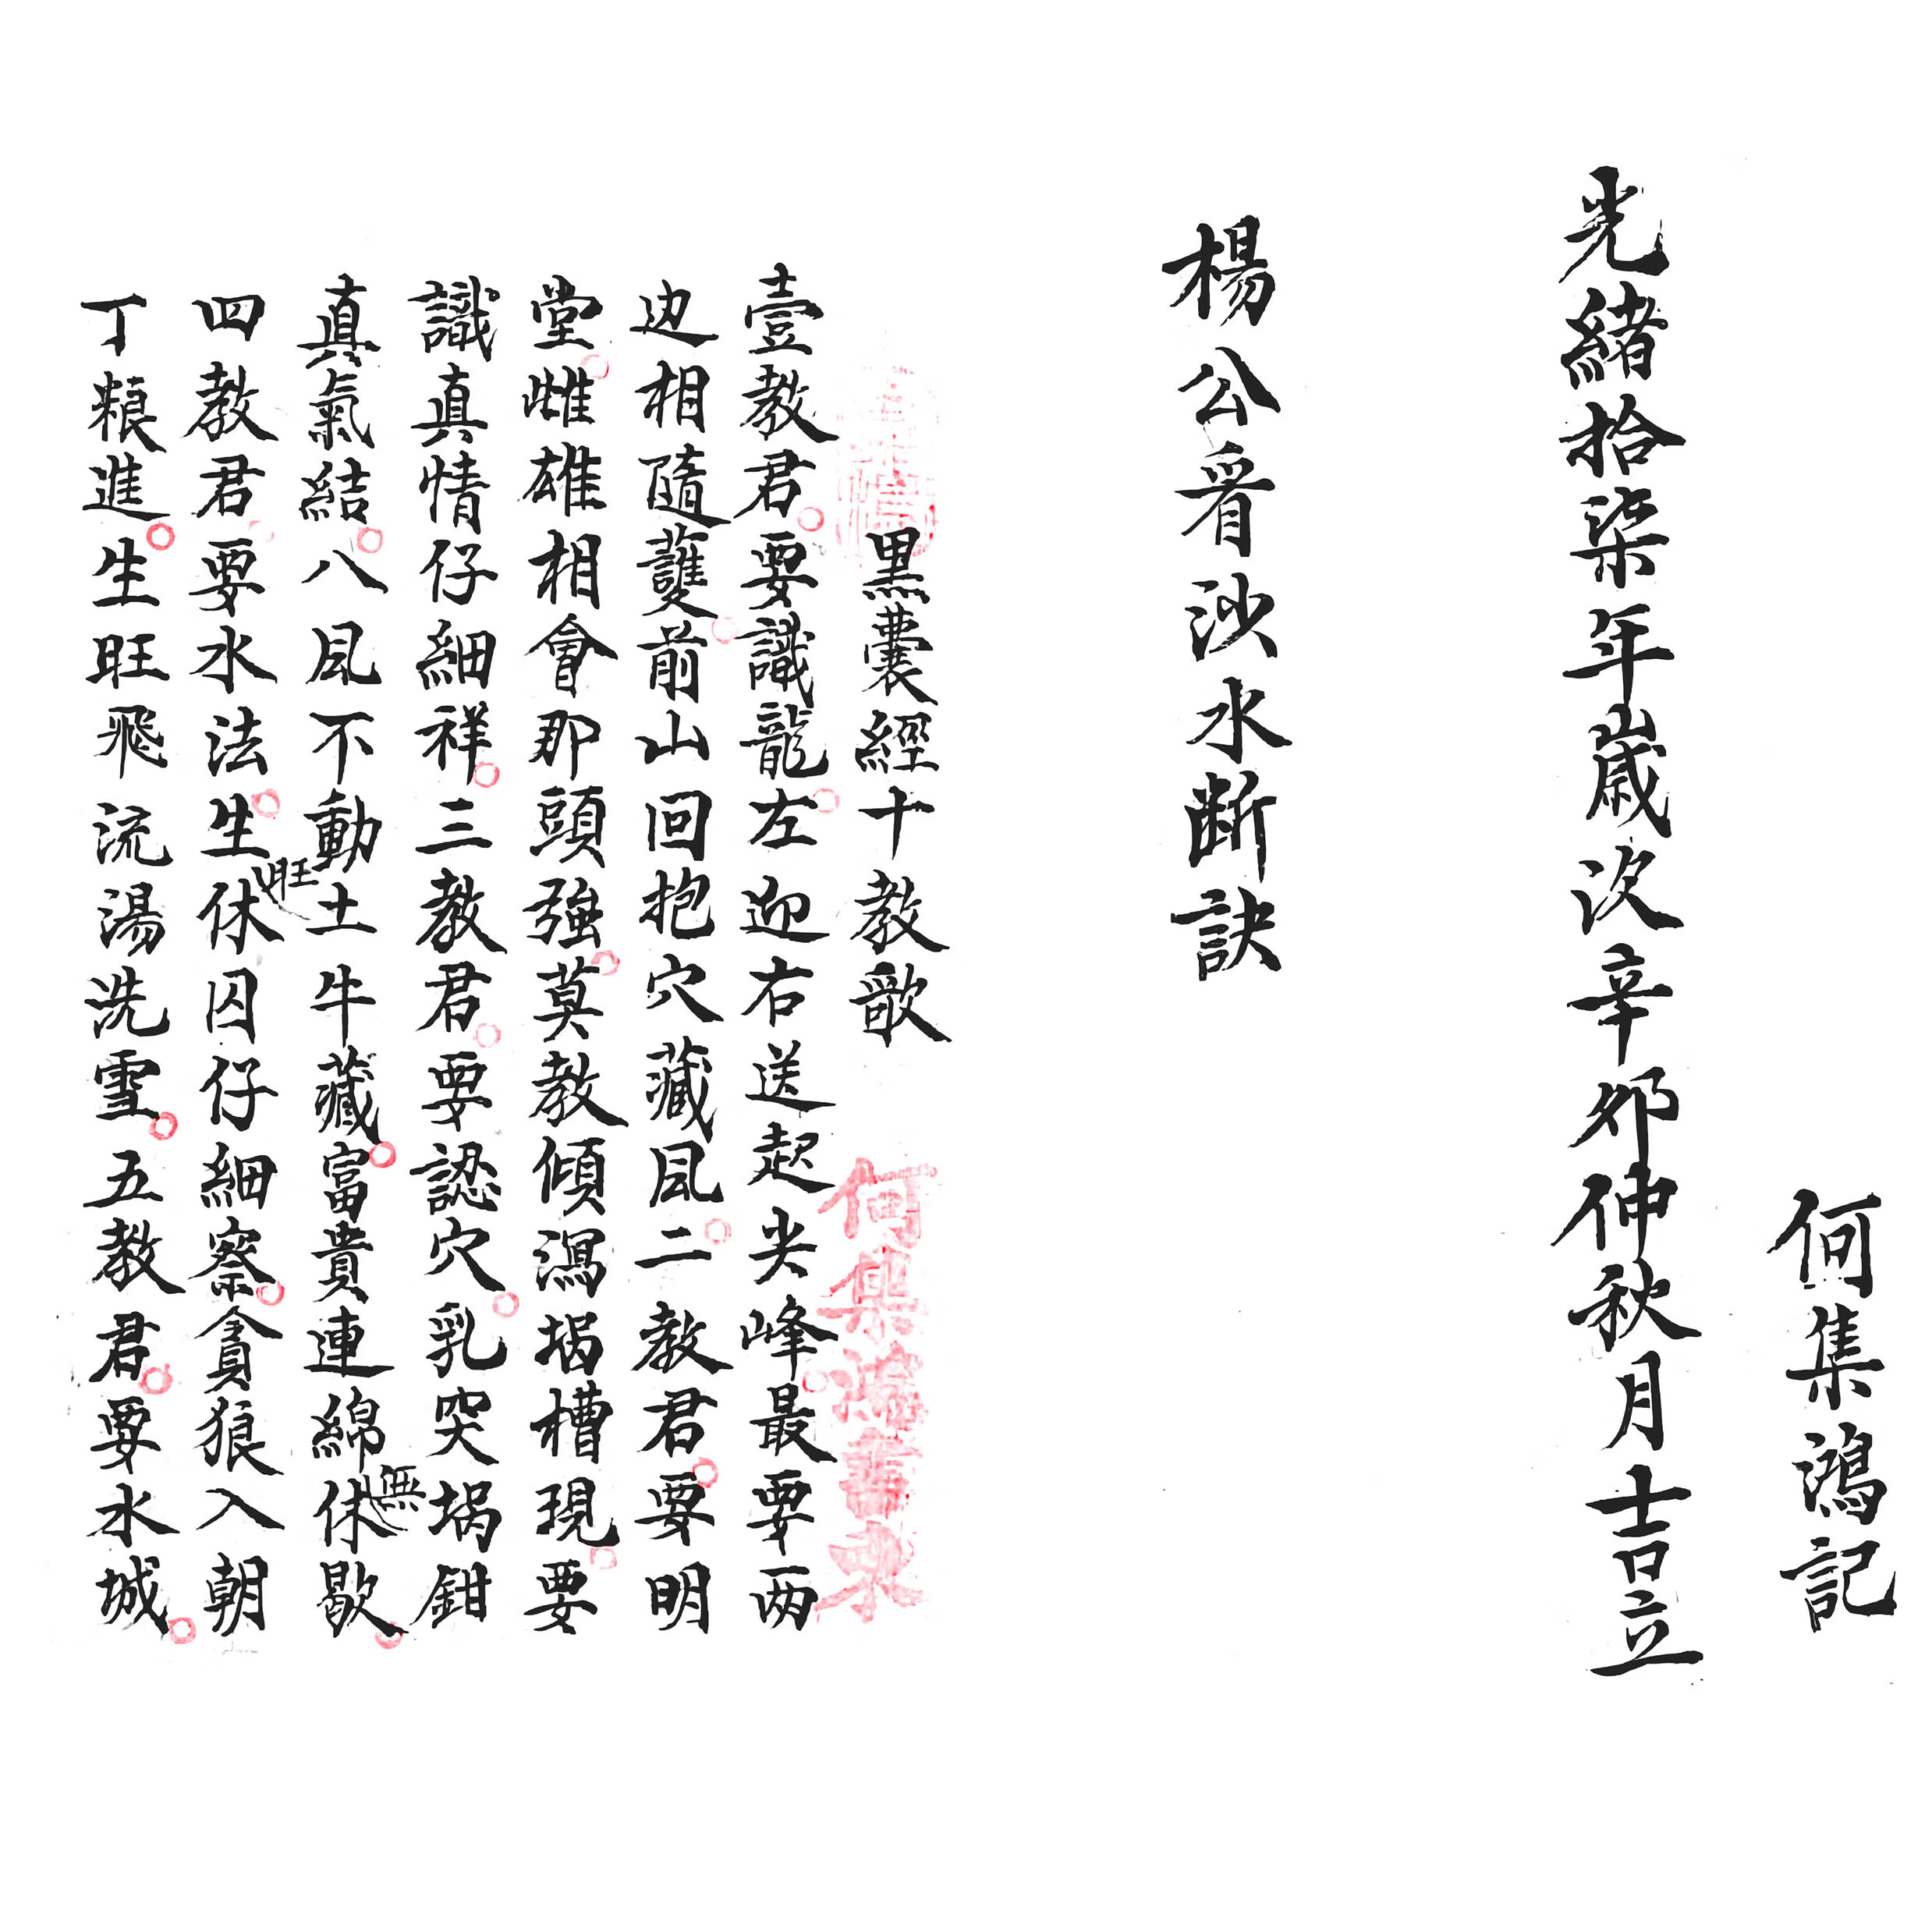 何集鴻記
光緒拾柒年歲次辛夘仲秋月吉日立
楊公看沙水断訣
黑囊經十教歌
何集鴻書束
壹教君要識龍左迎右送起尖峰最要兩
边相隨護前山回抱穴藏風二教君要明
堂雌雄相會那頭強莫教傾瀉堝槽現要
識真情仔細祥三教君要認穴乳突堝鉗
真氣結八風不動土牛藏富貴連綿無休歇
四教君要水法生旺休囚仔細察貪狼入朝
丁粮進生旺飛流湯洗雪五教君要水城